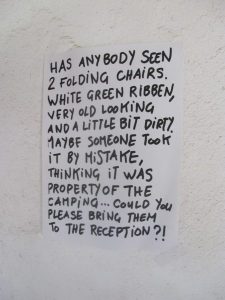 HAS ANYBODY SEEN
2 FOLDING CHAIRS.
WHITE GREEN RIBBEN,
VERY OLD LOOKING
AND A LITTLE BIT DIRTY.
MAYBE SOMEONE TOOK
IT BY MISTAKE,
THINKING IT WAS
PROPERTY OF THE
CAMPING... COULD YOU
PLEASE BRING THEM
TO THE RECEPTION?!